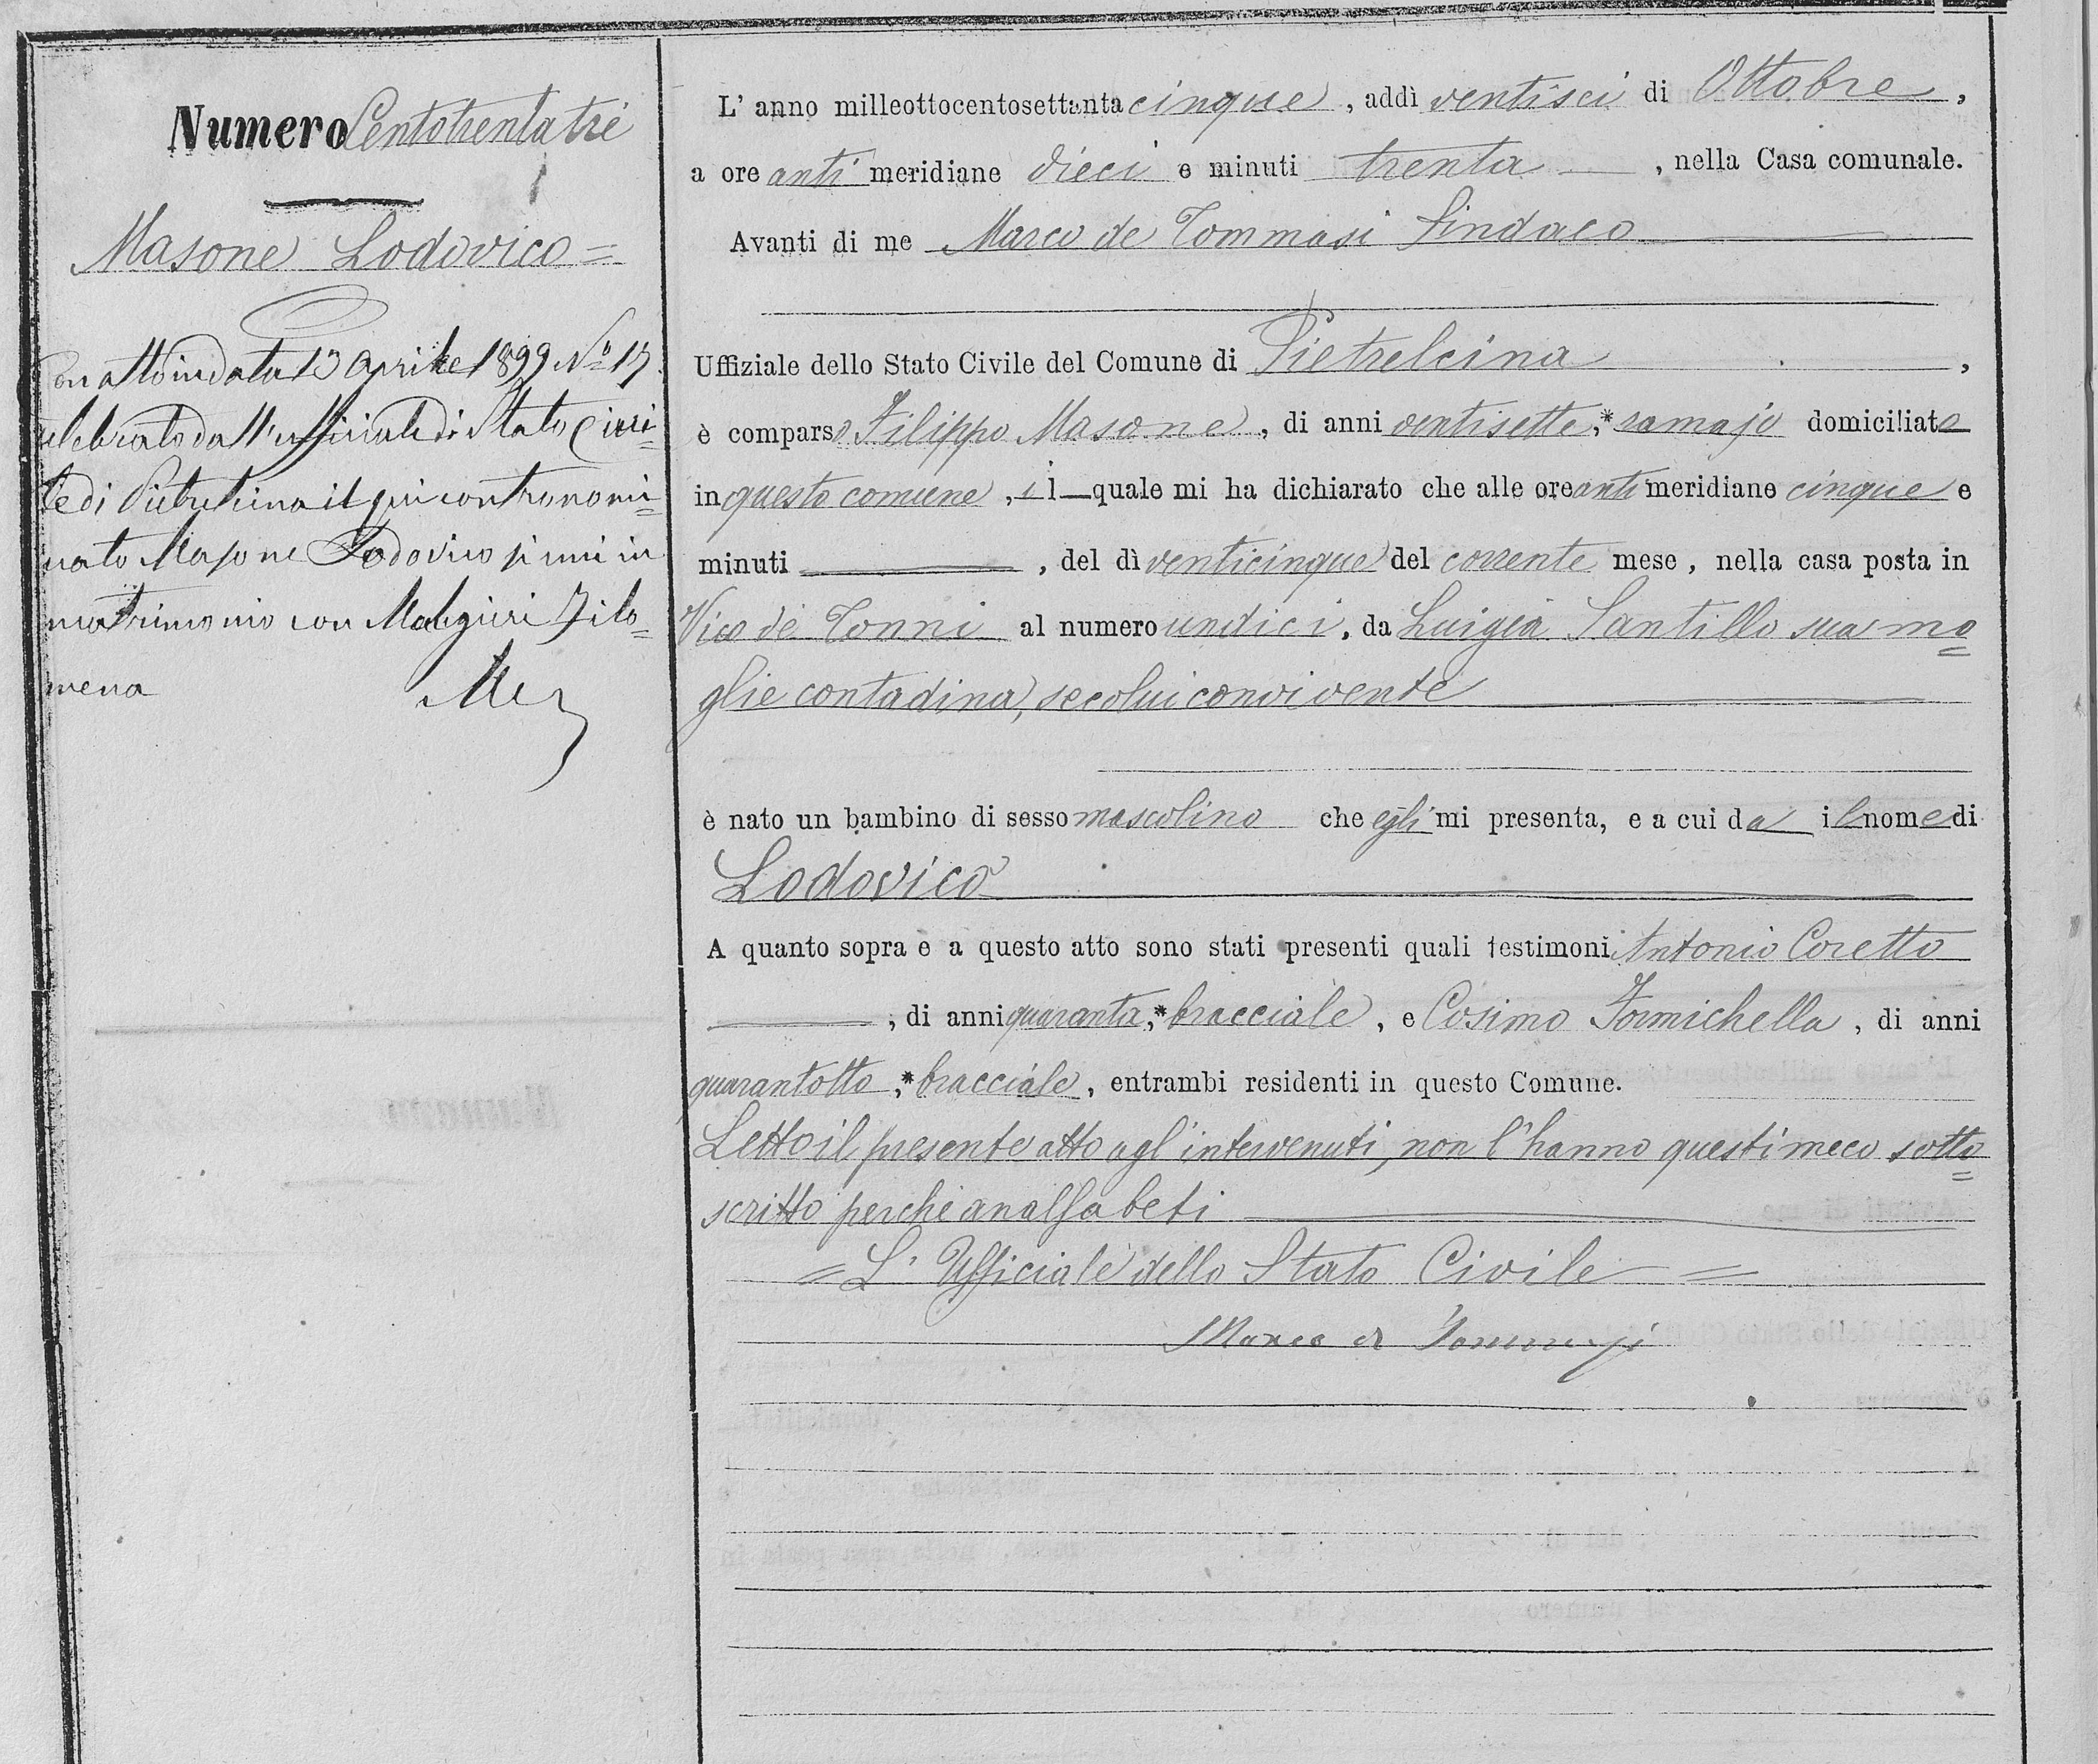 Numero Centotrentatrè
Masone Lodovico =
Con atto in data 13 Aprile 1899 Nº 17
celebrato dall'uffiziale di Stato Civi=
le di Pietrelcina il qui contronomi=
nato Masone Lodovico si unì in
matrimonio con Malgieri Filo=
mena
L' anno milleottocentosettanta cinque, addì ventisei di Ottobre,
a ore anti meridiane dieci e minuti trenta, nella Casa comunale.
Avanti di me Marco de Tommasi Sindaco
Uffiziale dello Stato Civile del Comune di Pietrelcina,
è comparso Filippo Masone, di anni ventisette,* ramajo domiciliato
in questo comune, il quale mi ha dichiarato che alle ore anti meridiane cinque e
minuti , del dì venticinque del corrente mese, nella casa posta in
Vico de Tonni al numero undici, da Luigia Santillo sua mo=
glie contadina, secolui convivente
è nato un bambino di sesso mascolino che egli mi presenta, e a cui da il nome di
Lodovico
A quanto sopra e a questo atto sono stati presenti quali testimoni Antonio Coretto
, di anni quaranta,* bracciale, e Cosimo Formichella, di anni
quarantotto,* bracciale, entrambi residenti in questo Comune.
Letto il presente atto agl'intervenuti, non l'hanno questi meco sotto=
scritto perchè analfabeti
= L'Ufficiale dello Stato Civile =
Marco de Tommasi